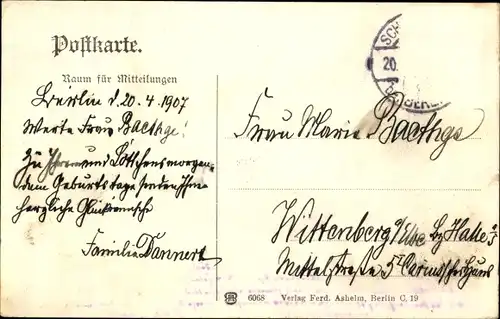 Postkarte.
Raum für Mitteilungen
Berlin d. 20.4.1907
Werte Frau Baethge!
Zu Ihrem und Lottchens morgen-
dem Geburtstage senden Ihnen
herzliche Glückwünsche
Familie Dannert
SCH
20.
BERL
Frau Marie Baethge
Wittenberg a/Elbe bz Halle
Mittelstraße 5I
6068 Verlag Ferd. Ashelm, Berlin C. 19